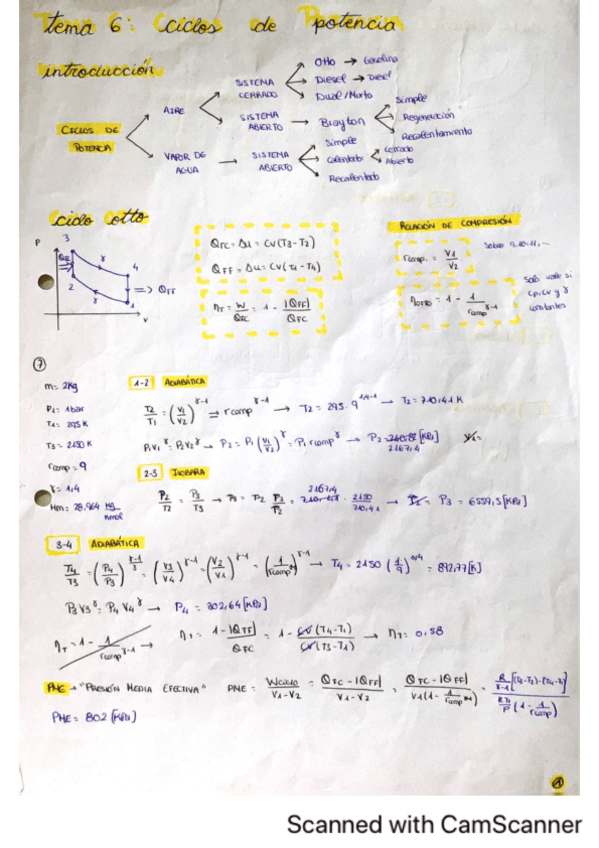 Tema 6: Ciclos de Potencia
introducción
CICLOS DE POTENCIA
AIRE
SISTEMA CERRADO
Otto → Gasolina
Diesel → Diesel
Dual/Mixto
SISTEMA ABIERTO → Brayton
Simple
Regeneración
Recalentamiento
VAPOR DE AGUA → SISTEMA ABIERTO
Simple
Cerrado
Abierto
Recalentado
ciclo otto
P
3
4
2
1
γ
γ
⇒ QFF
V
QFC = Δu = Cv(T3-T2)
QFF = Δu = Cv(T1-T4)
ηT = W/QFC = 1 - |QFF|/QFC
RELACIÓN DE COMPRESIÓN
rcomp. = V1/V2
ηotto = 1 - 1/rcomp^γ-1
Solo vale si
Cp, Cv y γ
constantes
7
m = 2kg
P1 = 1bar
T1 = 295K
T3 = 2150K
rcomp = 9
γ = 1,4
Mm = 28,964 kg/kmol
1-2 ADIABÁTICA
T2/T1 = (V1/V2)^γ-1 ⇒ rcomp^γ-1 → T2 = 295 · 9^1,4-1 → T2 = 710,41 K
P1V1^γ = P2V2^γ → P2 = P1 (V1/V2)^γ = P1 rcomp^γ → P2 = 2167,4 [kPa]
2-3 ISOBARA
P2/T2 = P3/T3
2167,4
2150/710,41 → P3 = 6559,5 [kPa]
3-4 ADIABÁTICA
T4/T3 = (P4/P3) = (V3/V4)^γ-1 = (V2/V1)^γ-1 = (1/rcomp)^γ-1 → T4 = 2150 (1/9)^0,4 = 892,77 [K]
P3V3^γ = P4V4^γ → P4 = 302,64 [kPa]
ηT = 1 - 1/rcomp^γ-1
1 - |QFF|/QFC = 1 - Cv(T4-T1)/Cv(T3-T2) → ηT = 0,58
PME → "PRESIÓN MEDIA EFECTIVA" PME = Wciclo/V1-V2 = QFC - |QFF|/V1-V2 = QFC - |QFF|/V1(1 - 1/rcomp)
PME = 802 [kPa]
1
Scanned with CamScanner